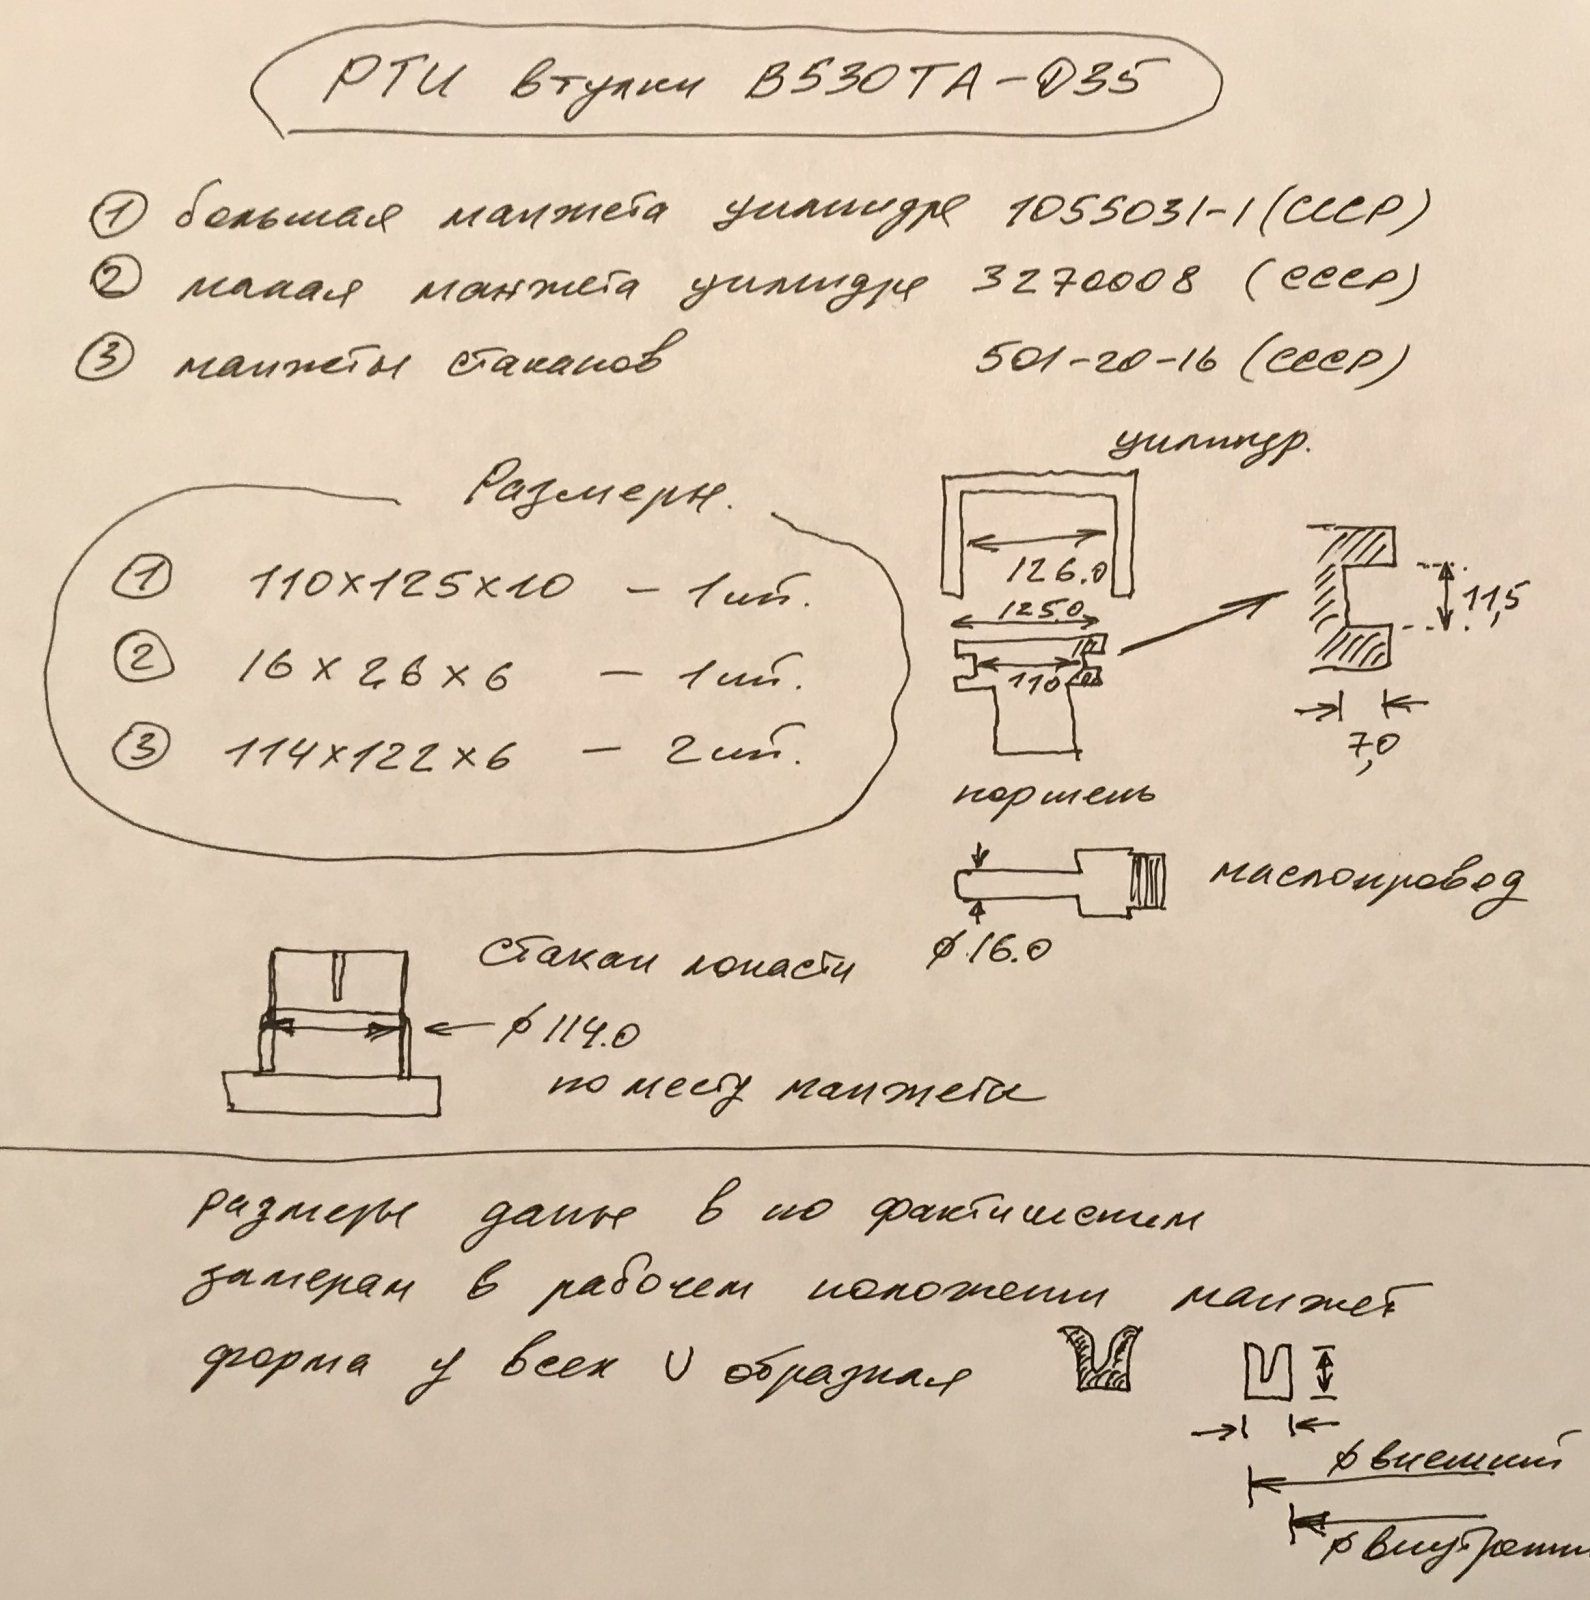 РТИ втулки В530ТА-Д35
① большая манжета цилиндра 1055031-1 (СССР)
② малая манжета цилиндра 3270008 (СССР)
③ манжеты стаканов 501-20-16 (СССР)
Размеры.
① 110×125×10 – 1 шт.
② 16×26×6 – 1 шт.
③ 114×122×6 – 2 шт.
цилиндр.
126.0
125.0
110
11,5
7,0
поршень
маслопровод
ø 16.0
стакан лопасти
ø 114.0
по месту манжеты
размеры даны в по фактическим
замерам в рабочем положении манжет
форма у всех U образная
ø внешний
ø внутренни